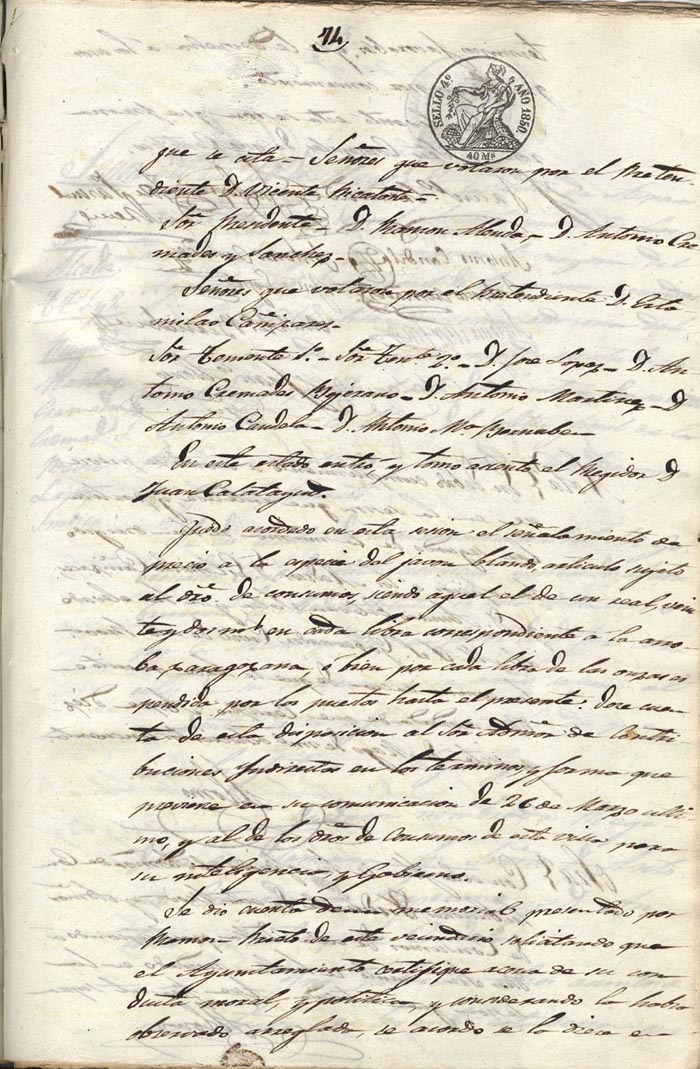 74
SELLO 4º AÑO 1850.
40 Ms
que se cita = Señores que votaron por el Preten
diente D. Vicente
Sor Presidente = D. Ramon = D. Antonio Cre
mades y Sanchez =
Señores que votaron por el Pretendiente D. Esta
nilao
Sor Teniente 1º = Sor Tente 2º = D. Jose Lopez = D. An
tonio Cremades Bejerano = D. Antonio Martinez = D
Antonio Candela = D. Antonio Mª Bernabe =
En este estado entró y tomo asiento el Regidor D
Juan Calatayud.
Quedó acordado en esta sesion el señalamiento de
precio a la especie del javon blando, articulo sujeto
al dro. de consumos, siendo aquel el de un real, vein
te y dos ms en cada libra correspondiente a la arro
ba zaragozana, o bien por cada libra de las onzas es
pendida por los puestos hasta el presente: dose cuen
ta de esta disposicion al Sor Admor de Contri
buciones Indirectas en los terminos y forma que
previene en su comunicacion de 26 de Marzo ulti
mo, y al de los dros de Consumos de esta villa para
su inteligencia, y Gobierno.
Se dio cuenta de un memorial presentado por
Ramon Prieto de este vecindario solicitando que
el Ayuntamiento certifique acerca de su con
ducta moral, y politica, y considerando la habia
observado arreglada, se acordo se le diera en